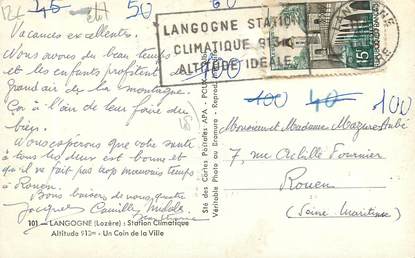 45
50
60
100
100 40 100
LANGOGNE STATION
CLIMATIQUE 913 M
ALTITUDE IDÉALE
LANGOGNE
LOZÈRE
15F
Vacances excellentes.
Nous avons du beau temps
et les enfants profitent du
grand air de la montagne.
Ça a l'air de leur faire du
bien.
Nous espérons que votre santé
à tous les deux est bonne et
qu'il ne fait pas trop mauvais temps
à Rouen.
Bons baisers de nous quatre
Jacques Camille
101 — LANGOGNE (Lozère) : Station Climatique
Altitude 913m - Un Coin de la Ville
Sté des Cartes Postales APA - POUX
Véritable Photo au Bromure - Reprod.
Monsieur et Madame Mazure Aubé
7, rue Achille Fournier
Rouen
(Seine Maritime)